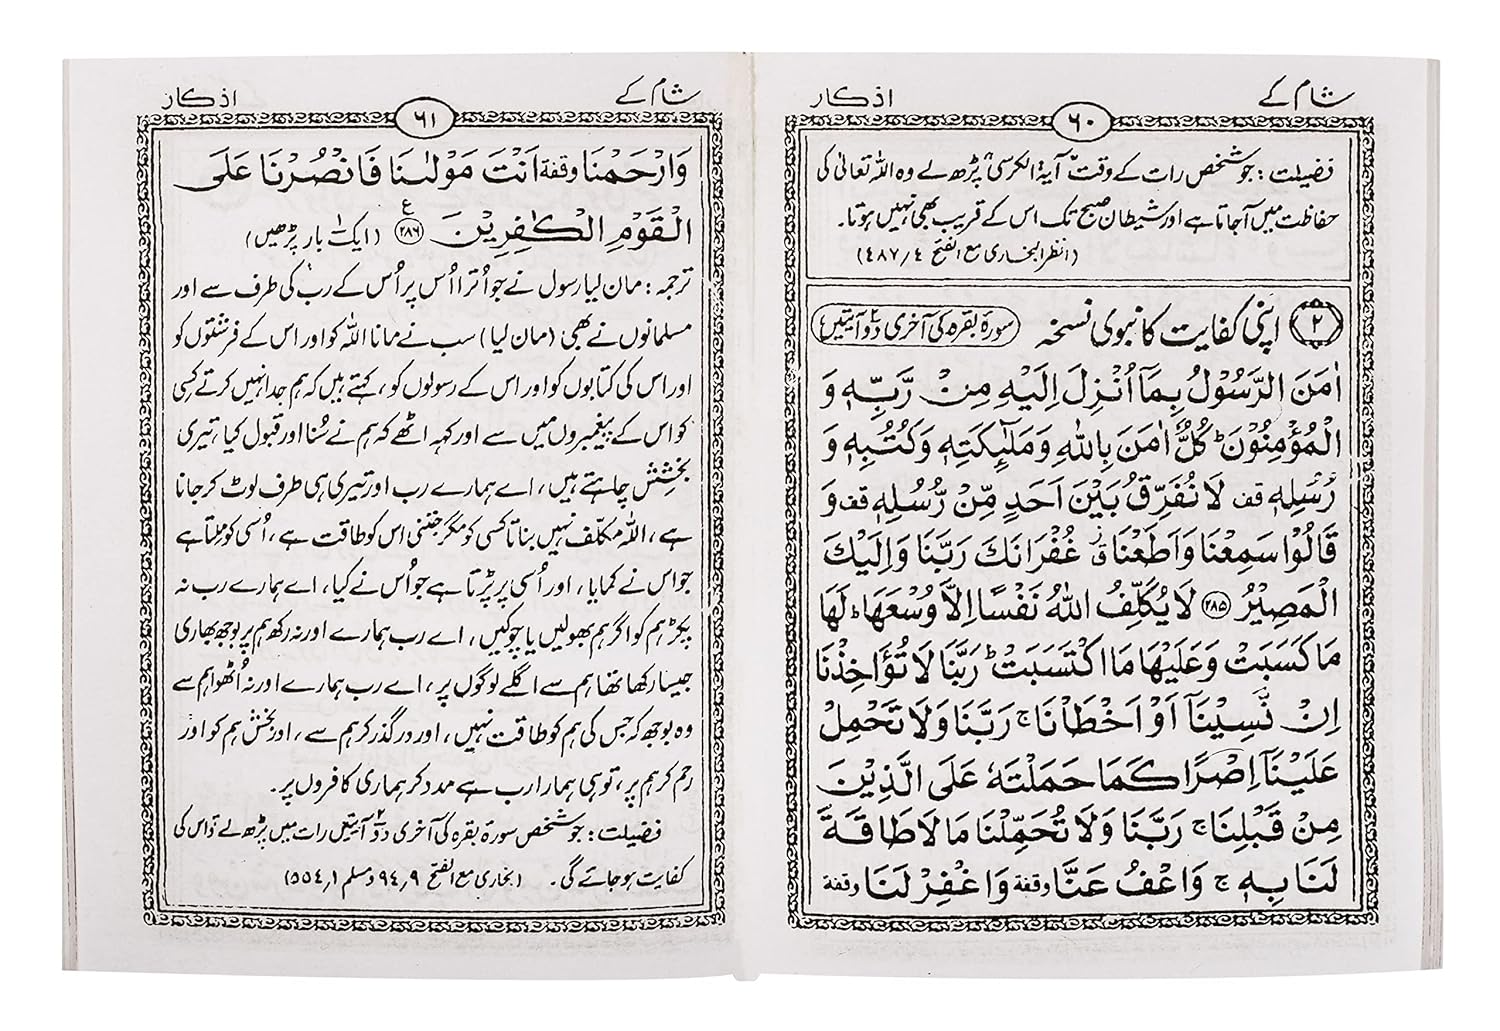 شام کے
اذکار
٦٠
فضیلت : جو شخص رات کے وقت "آیۃ الکرسی" پڑھ لے وہ اللہ تعالیٰ کی
حفاظت میں آجاتا ہے اور شیطان صبح تک اس کے قریب بھی نہیں ہوتا۔
(انظر البخاری مع الفتح ٤/٤٨٧)
٢ اپنی کفایت کا نبوی نسخہ (سورۃ بقرہ کی آخری دو ٢ آیتیں)
اٰمَنَ الرَّسُوْلُ بِمَآ اُنْزِلَ اِلَيْهِ مِنْ رَّبِّهٖ وَ
الْمُؤْمِنُوْنَ ؕ كُلٌّ اٰمَنَ بِاللّٰهِ وَمَلٰٓئِكَتِهٖ وَكُتُبِهٖ وَ
رُسُلِهٖ قف لَا نُفَرِّقُ بَيْنَ اَحَدٍ مِّنْ رُّسُلِهٖ قف وَ
قَالُوْا سَمِعْنَا وَاَطَعْنَا ق ز غُفْرَانَكَ رَبَّنَا وَاِلَيْكَ
الْمَصِيْرُ ﴿٢٨٥﴾ لَا يُكَلِّفُ اللّٰهُ نَفْسًا اِلَّا وُسْعَهَا ؕ لَهَا
مَا كَسَبَتْ وَعَلَيْهَا مَا اكْتَسَبَتْ ؕ رَبَّنَا لَا تُؤَاخِذْنَا
اِنْ نَّسِيْنَآ اَوْ اَخْطَاْنَا ۚ رَبَّنَا وَلَا تَحْمِلْ
عَلَيْنَآ اِصْرًا كَمَا حَمَلْتَهٗ عَلَى الَّذِيْنَ
مِنْ قَبْلِنَا ۚ رَبَّنَا وَلَا تُحَمِّلْنَا مَا لَا طَاقَةَ
لَنَا بِهٖ ۚ وَاعْفُ عَنَّا وقفة وَاغْفِرْ لَنَا وقفة
شام کے
اذکار
٦١
وَارْحَمْنَا وقفة اَنْتَ مَوْلٰىنَا فَانْصُرْنَا عَلَى
الْقَوْمِ الْكٰفِرِيْنَ ﴿٢٨٦﴾ ع (ایک ١ بار پڑھیں)
ترجمہ : مان لیا رسول نے جو اُترا اُس پر اُس کے رب کی طرف سے اور
مسلمانوں نے بھی (مان لیا) سب نے مانا اللہ کو اور اس کے فرشتوں کو
اور اس کی کتابوں کو اور اس کے رسولوں کو، کہتے ہیں کہ ہم جدا نہیں کرتے کسی
کو اس کے پیغمبروں میں سے اور کہہ اٹھے کہ ہم نے سُنا اور قبول کیا، تیری
بخشِش چاہتے ہیں، اے ہمارے رب اور تیری ہی طرف لوٹ کر جانا
ہے، اللہ مکلّف نہیں بناتا کسی کو مگر جتنی اس کو طاقت ہے، اُسی کو ملتا ہے
جو اس نے کمایا، اور اُسی پر پڑتا ہے جو اُس نے کیا، اے ہمارے رب نہ
پکڑ ہم کو اگر ہم بھولیں یا چوکیں، اے رب ہمارے اور نہ رکھ ہم پر بوجھ بھاری
جیسا رکھا تھا ہم سے اگلے لوگوں پر، اے رب ہمارے اور نہ اُٹھوا ہم سے
وہ بوجھ کہ جس کی ہم کو طاقت نہیں، اور درگذر کر ہم سے، اور بخش ہم کو اور
رحم کر ہم پر، تو ہی ہمارا رب ہے مدد کر ہماری کافروں پر۔
فضیلت : جو شخص سورۃ بقرہ کی آخری دو ٢ آیتیں رات میں پڑھ لے تو اس کی
کفایت ہو جائے گی۔ (بخاری مع الفتح ٩/٩٤ و مسلم ١/٥٥٤)